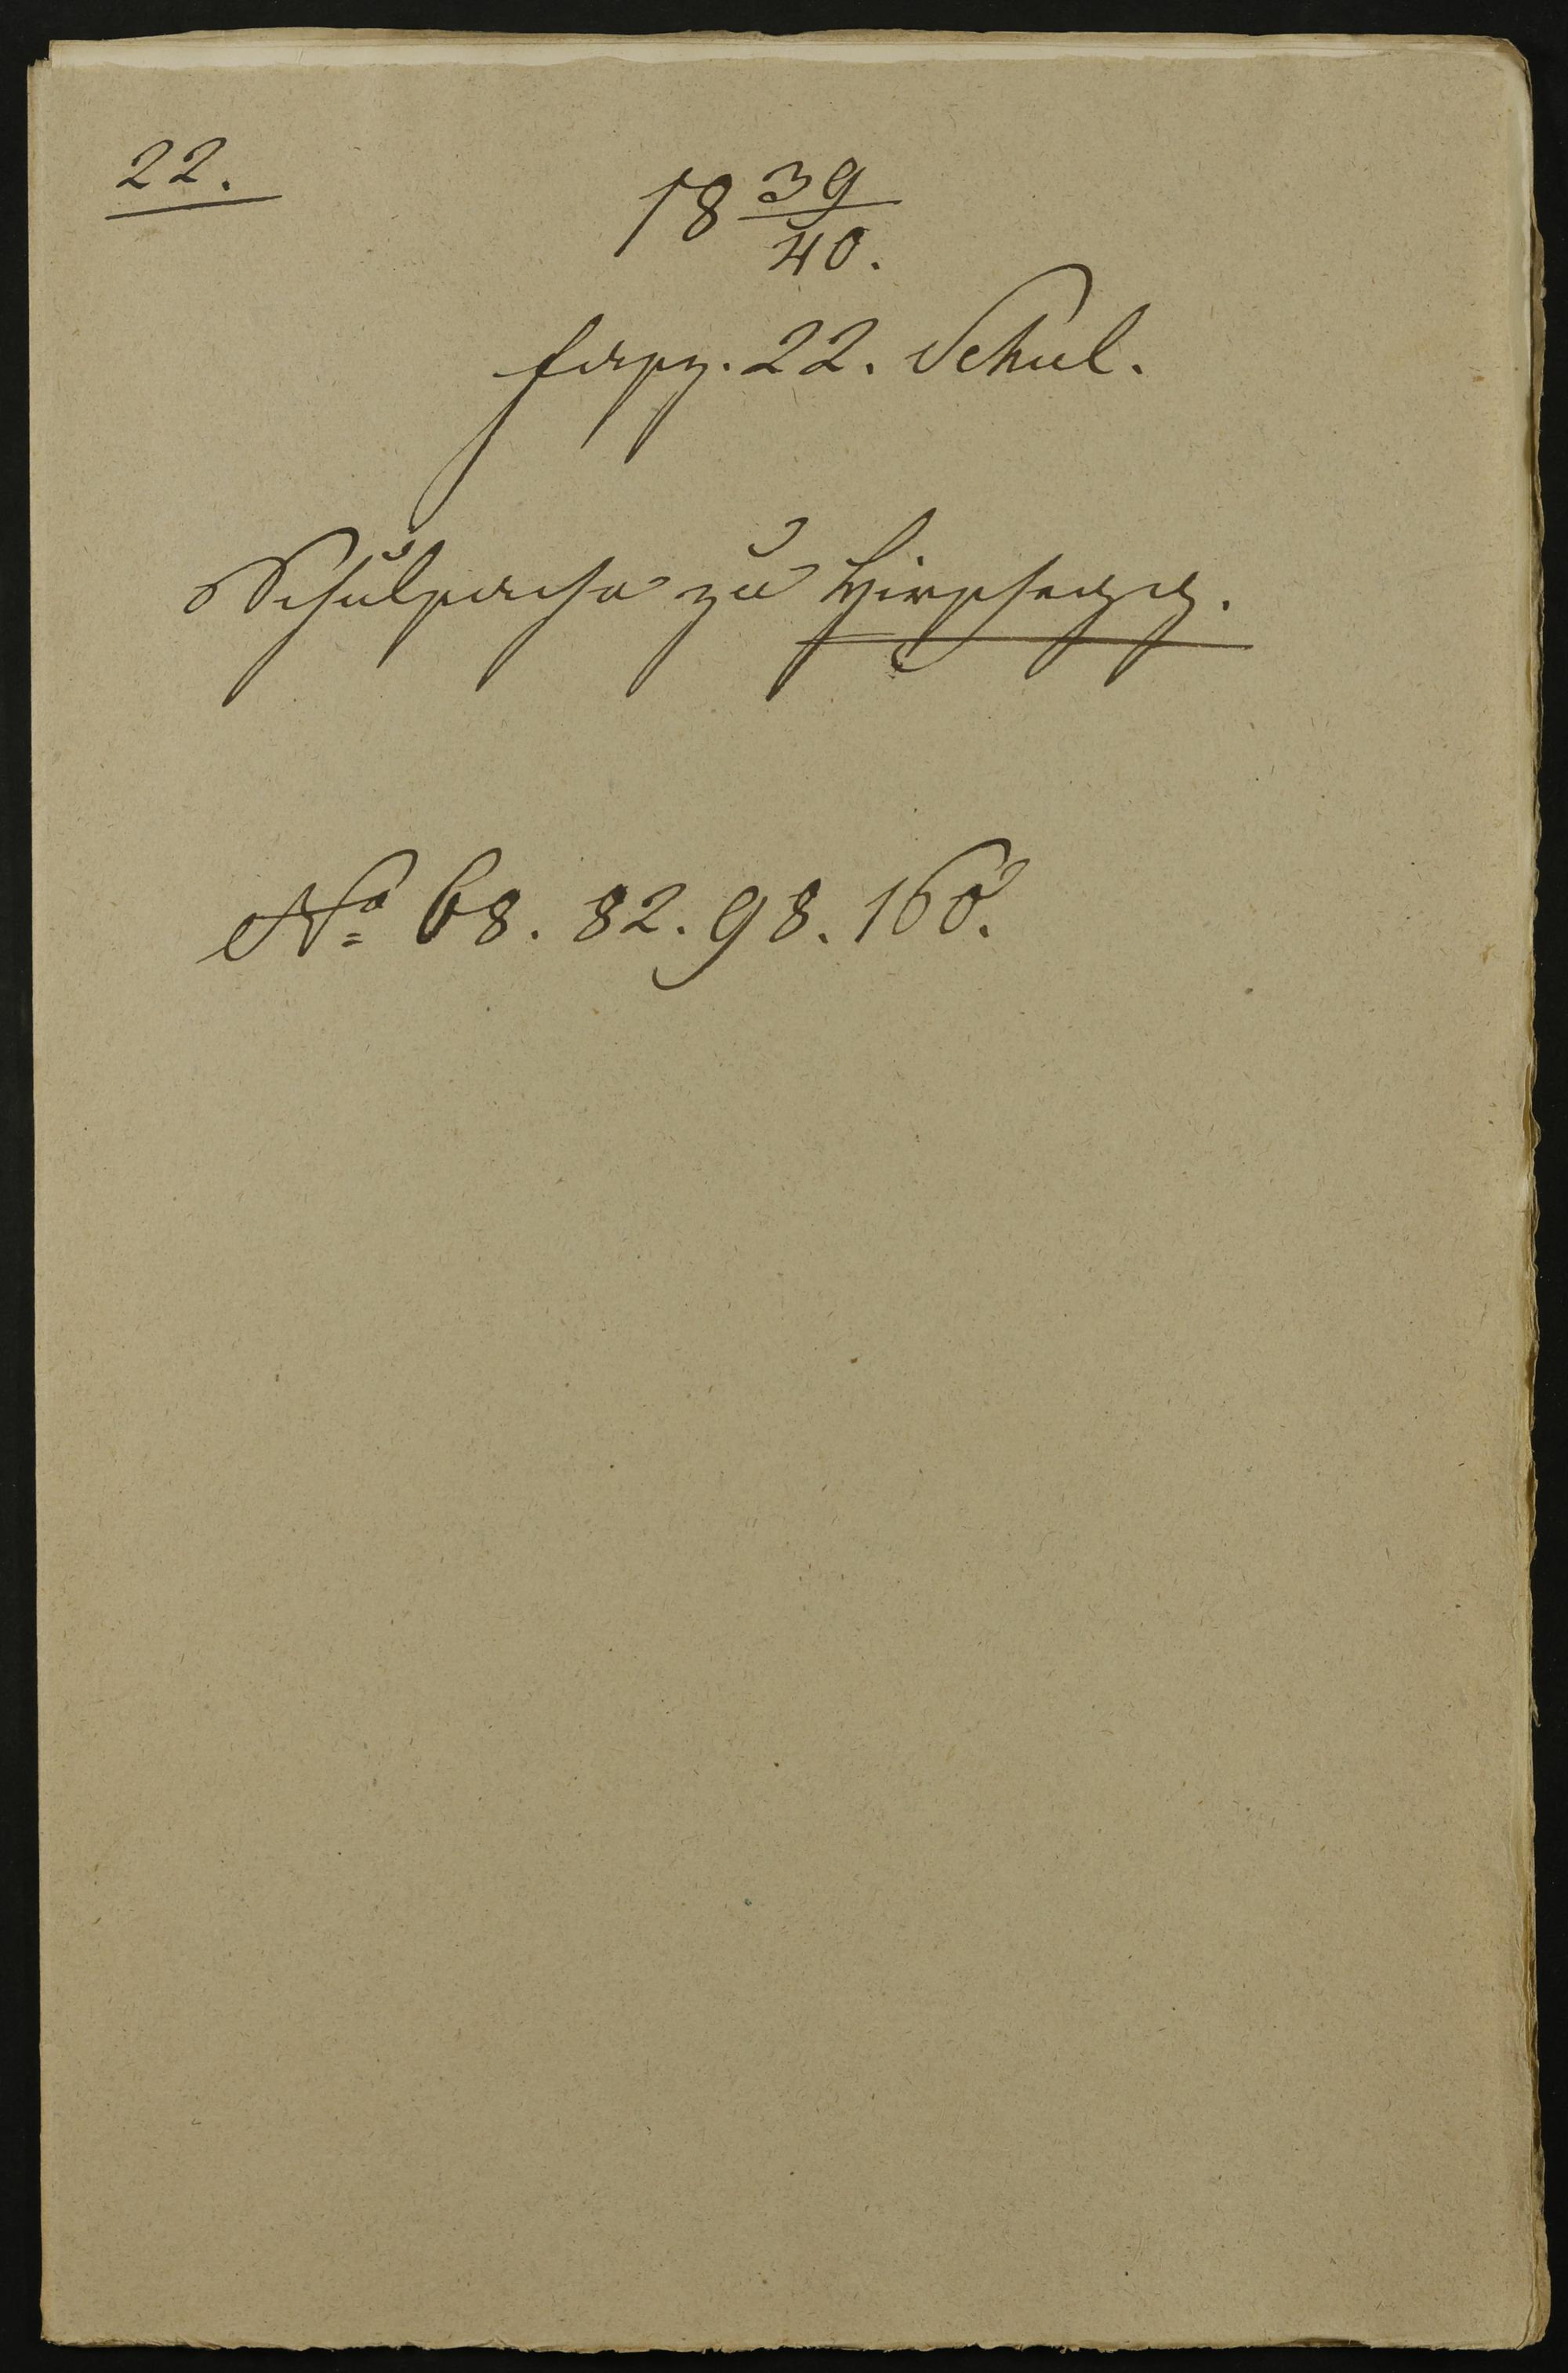 22.
18 39/40.
fasz. 22. Schul.
Schulsache zu Hirschegg.
No 68. 82. 98. 160.